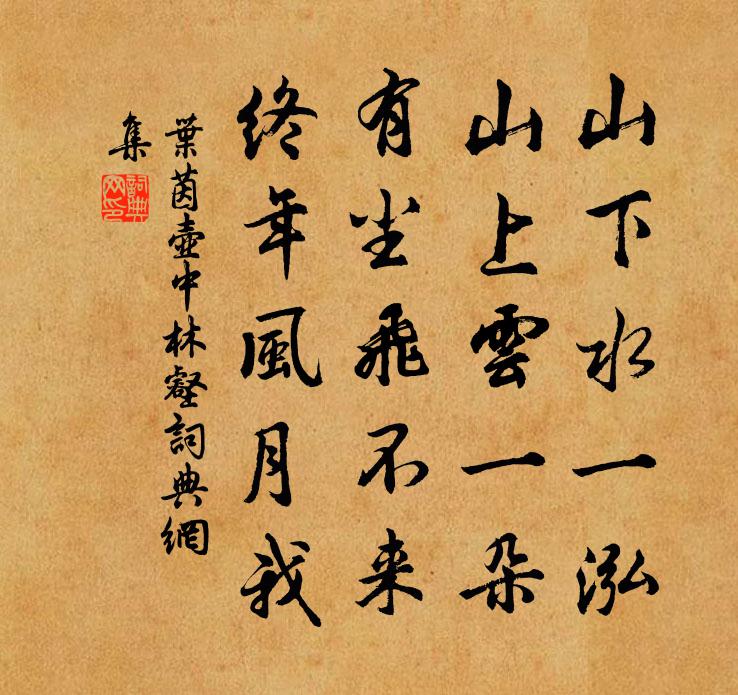 山下水一泓
山上雲一朵
有尘飛不来
終年風月我
葉茵壺中林壑詞典網
集
詞典
网印